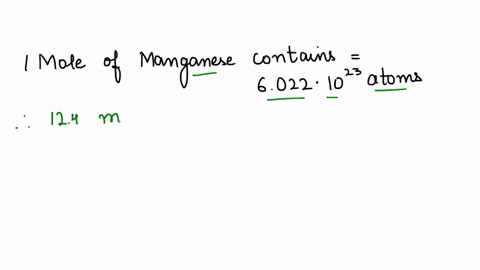 1 Mole of Manganese contains =
6.022 · 10²³ atoms
∴ 12.4 m